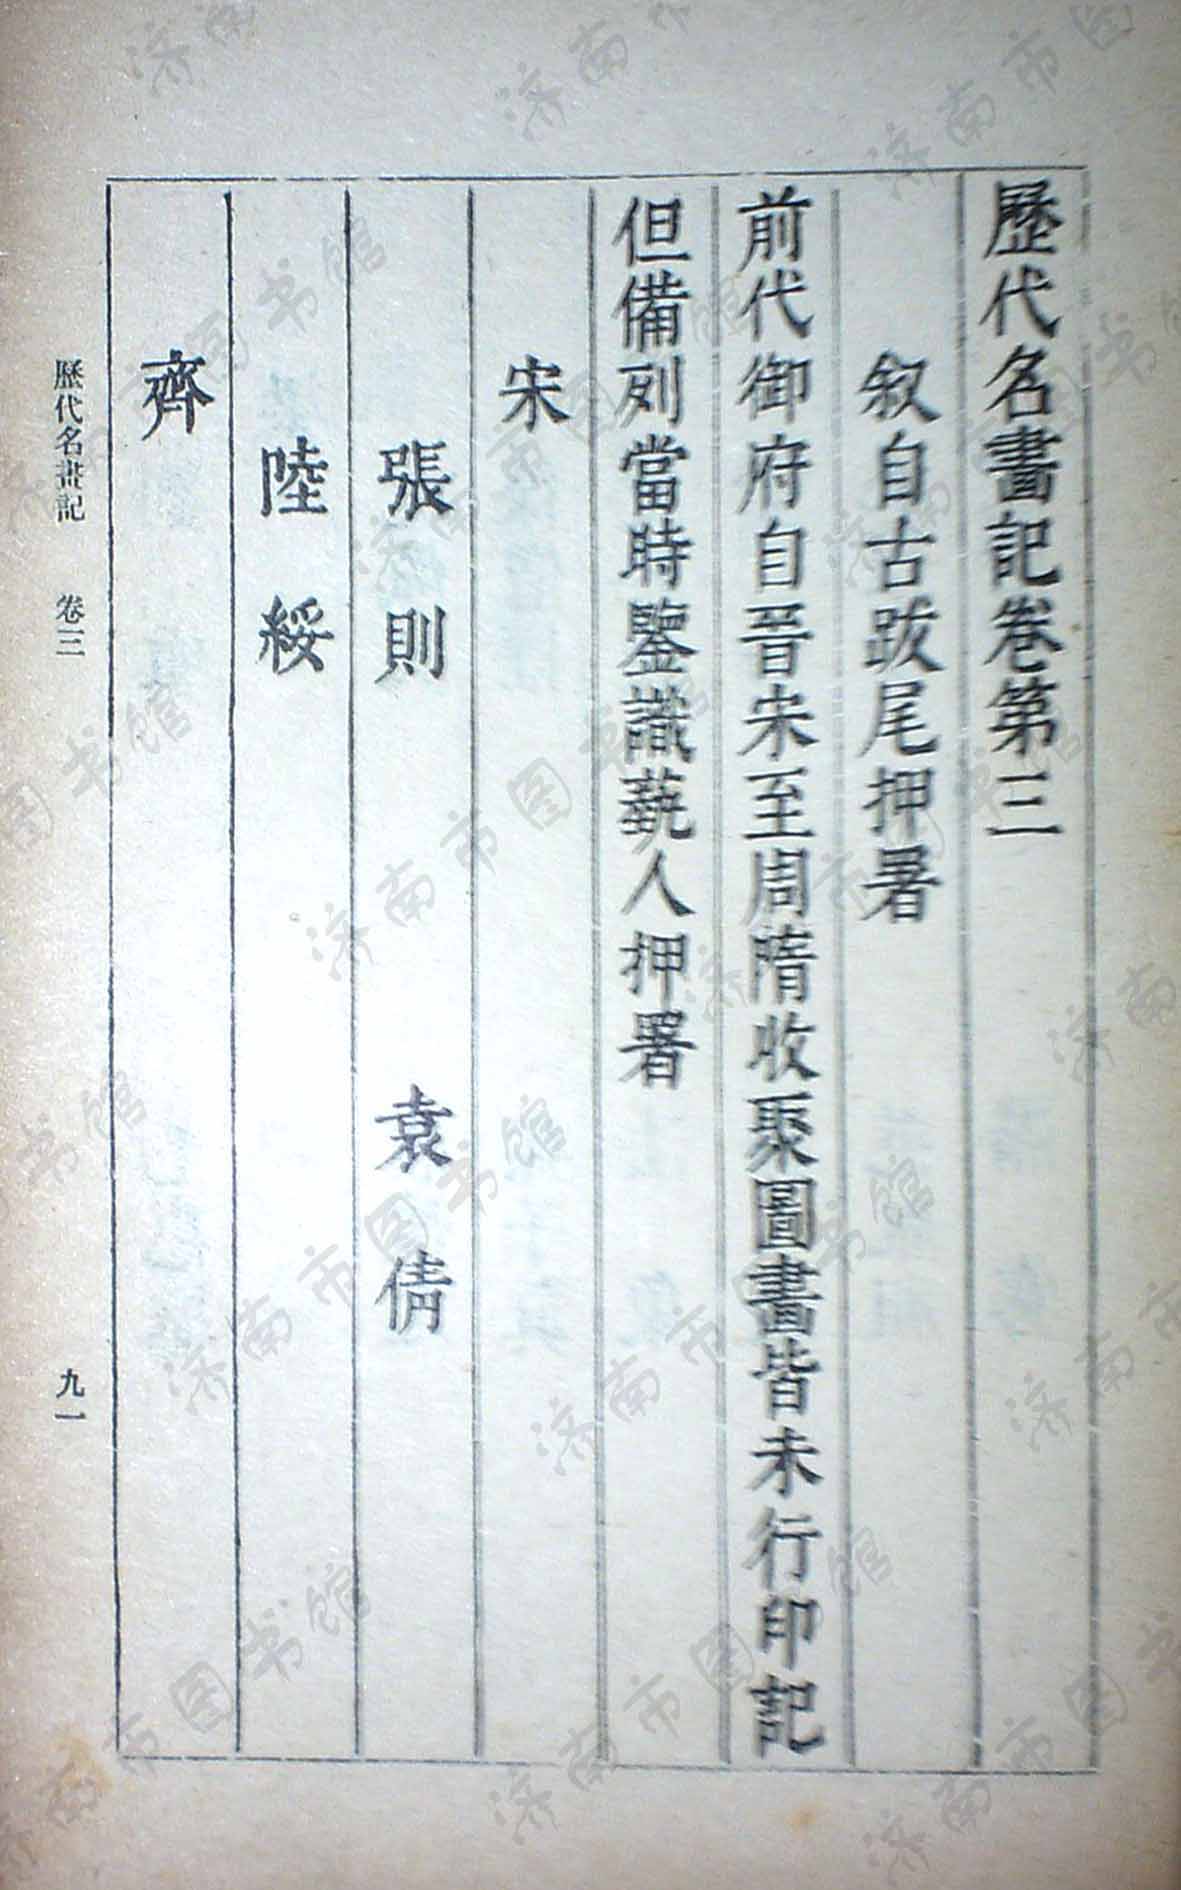 歷代名畫記卷第三
叙自古跋尾押署
前代御府自晉宋至周隋收聚圖畫皆未行印記
但備列當時鑒識蓺人押署
宋
張則 袁倩
陸綏
齊
歷代名畫記 卷三 九一
济南市图书馆